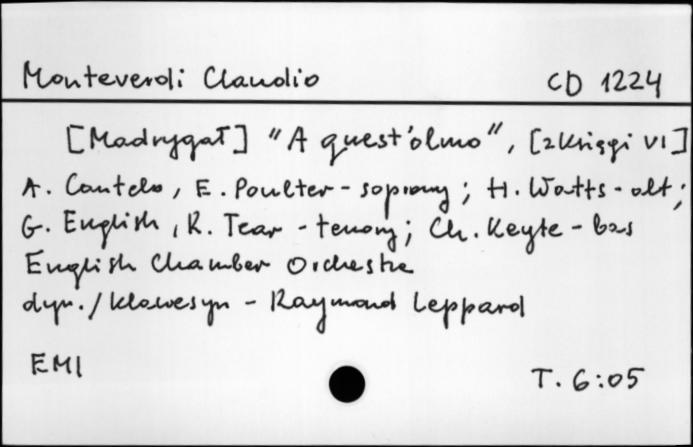 Monteverdi Claudio CD 1224
[Madrygał] "A quest'olmo", [z Księgi VI]
A. Cantelo, E. Poulter - soprany; H. Watts - alt;
G. English, R. Tear - tenory; Ch. Keyte - bas
English Chamber Orchestra
dyr./klawesyn - Raymond Leppard
EMI T. 6:05